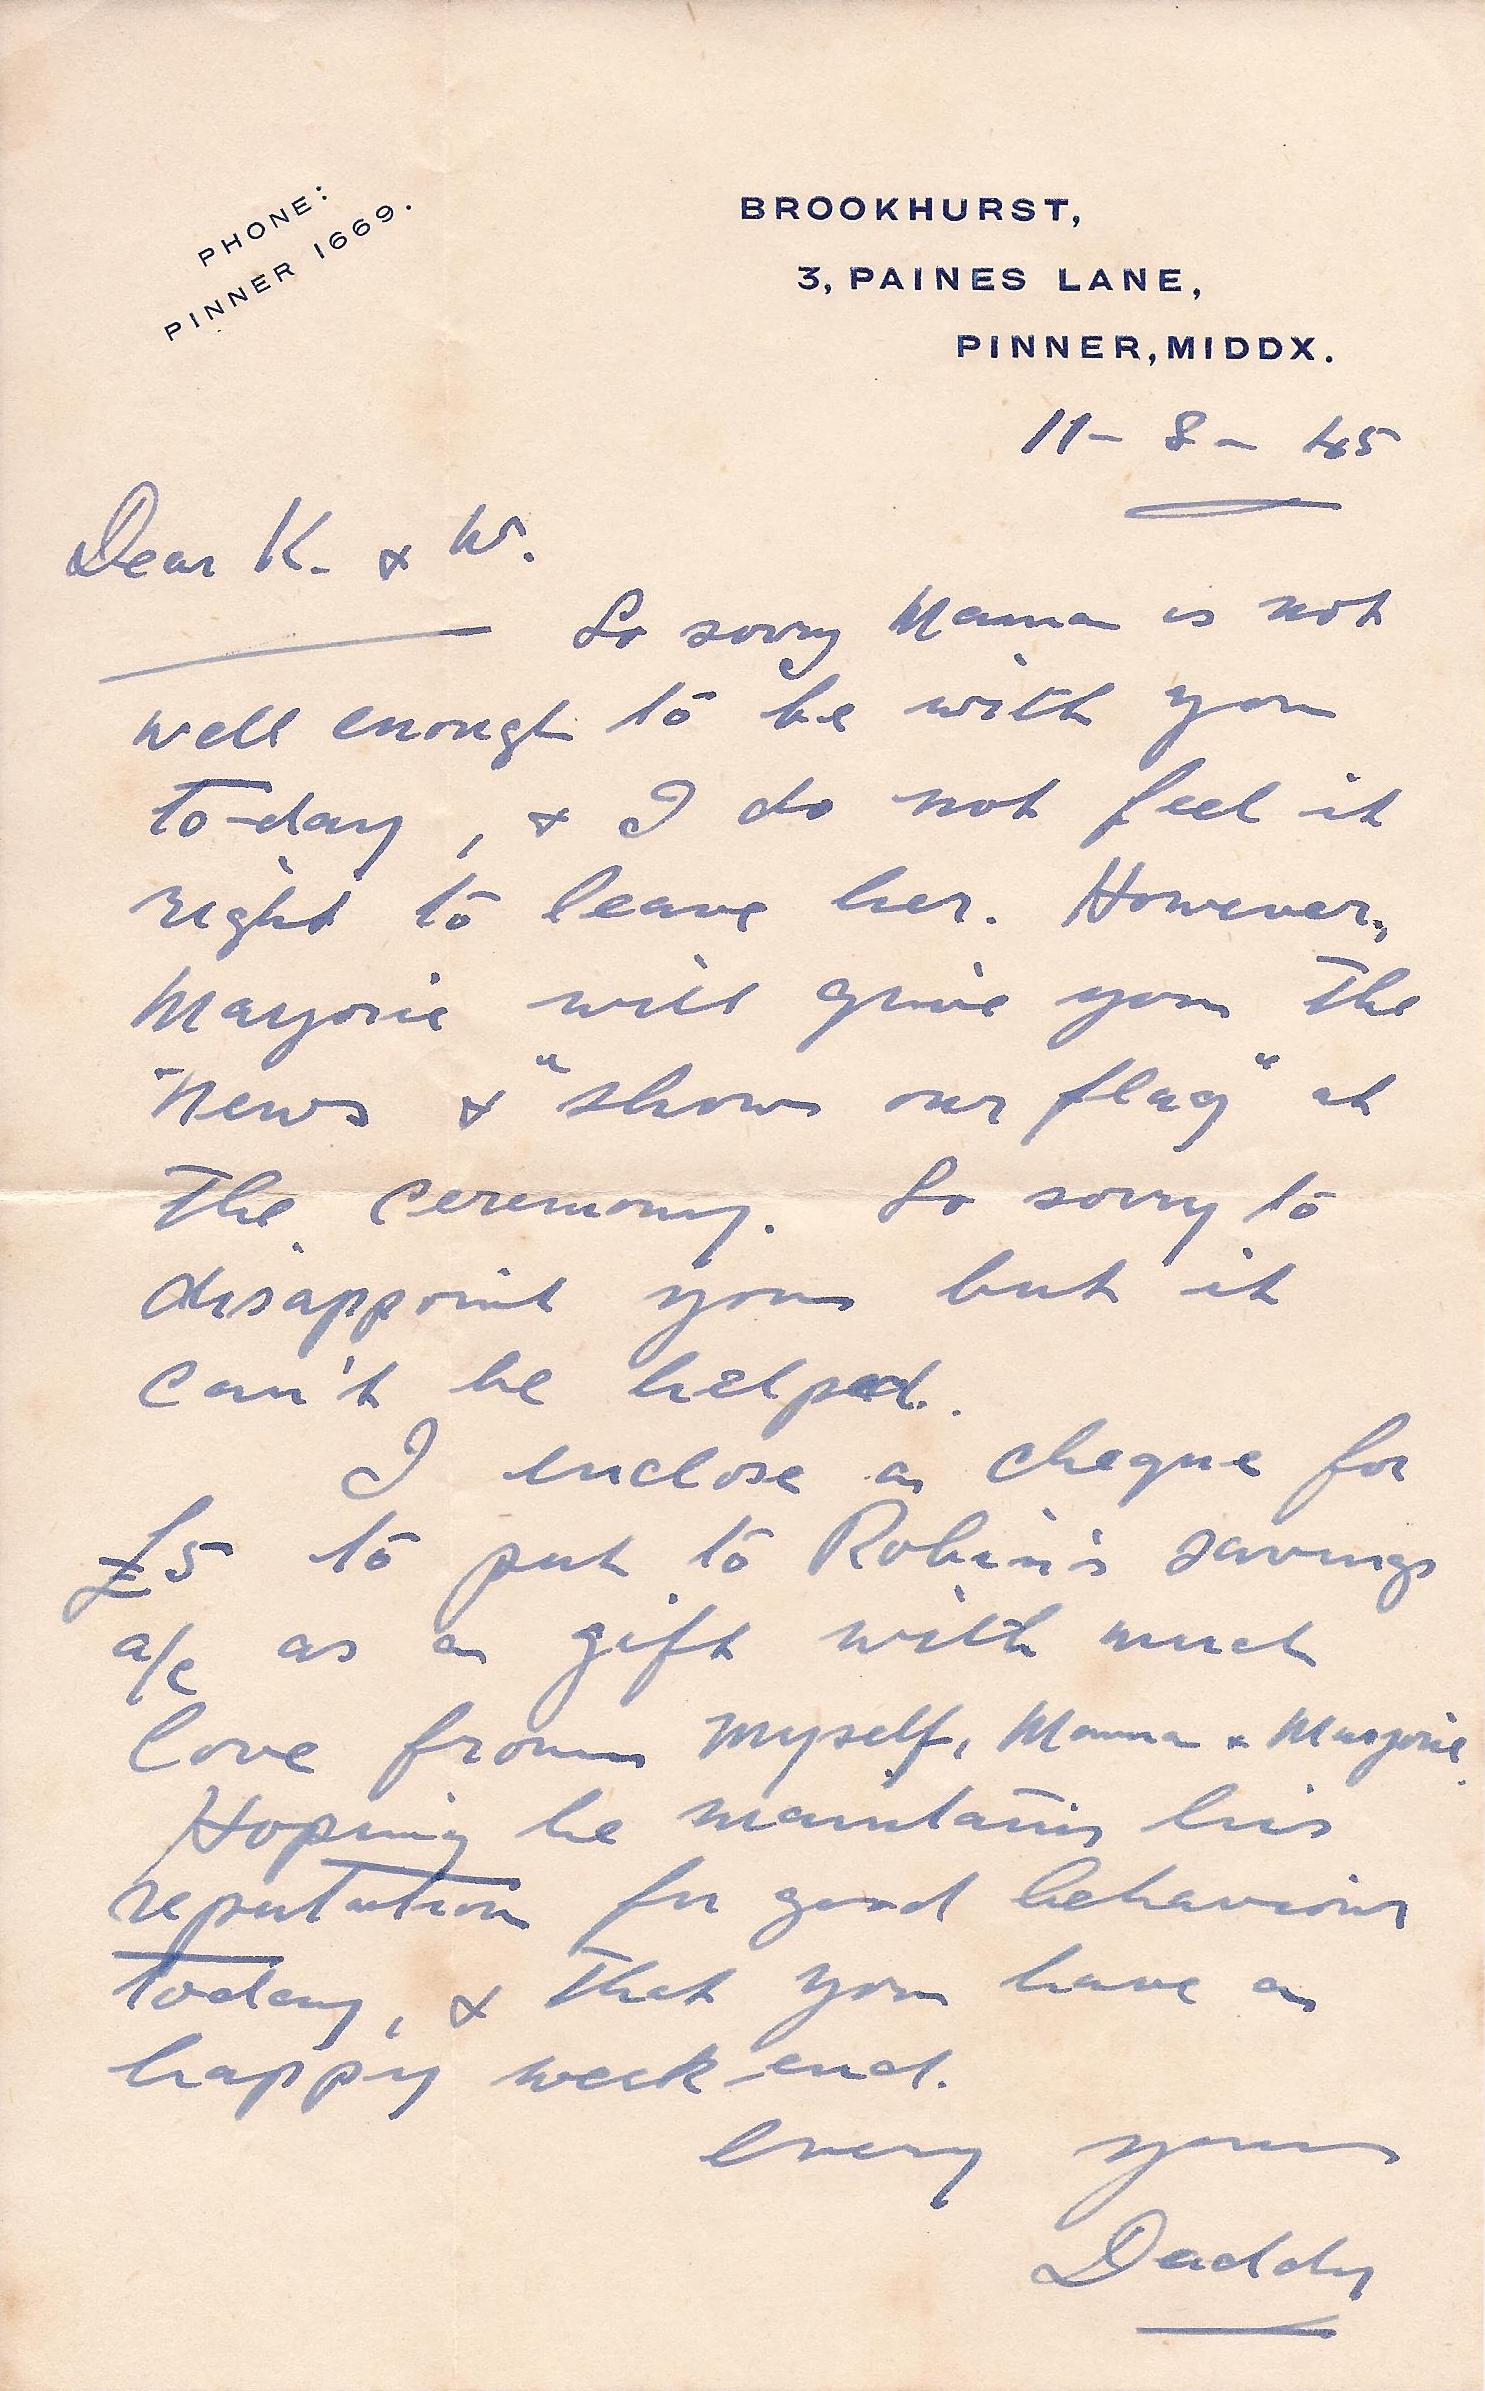 PHONE:
PINNER 1669.
BROOKHURST,
3, PAINES LANE,
PINNER, MIDDX.
11-8-45
Dear K. & W.
So sorry Mama is not
well enough to be with you
to-day, & I do not feel it
right to leave her. However,
Marjorie will give you the
news & "show our flag" at
the ceremony. So sorry to
disappoint you but it
can't be helped.
I enclose a cheque for
£5 to put to Robin's savings
a/c as a gift with much
love from myself, Mama & Marjorie.
Hoping he maintains his
reputation for good behaviour
today, & that you have a
happy week-end.
Every yours
Daddy